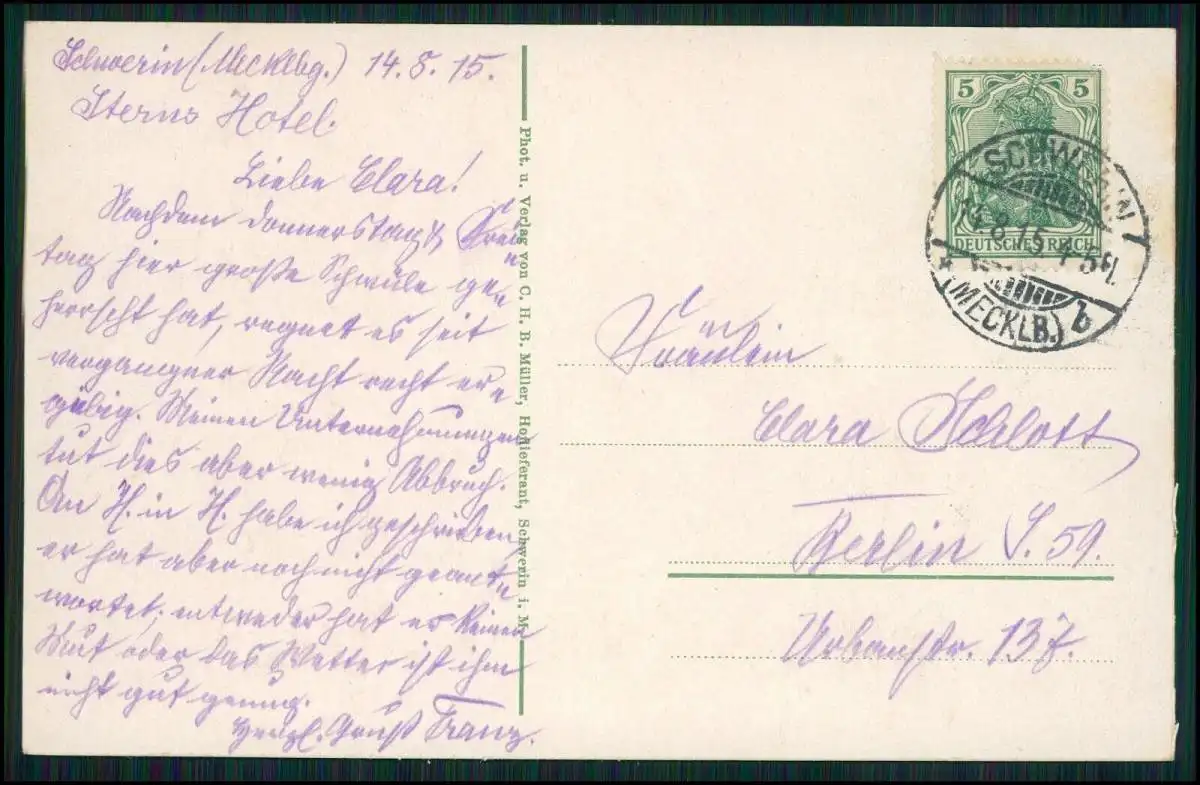 Schwerin (Mecklbg.) 14.8.15.
Sterns Hotel.
Liebe Clara!
Nachdem Donnerstag & Frei=
tag hier große Schwüle ge=
herrscht hat, regnet es seit
vergangner Nacht recht er=
giebig. Meinen Unternehmungen
tut dies aber wenig Abbruch.
An H. in H. habe ich geschrieben,
er hat aber noch nicht geant=
wortet; entweder hat er keinen
Mut oder das Wetter ist ihm
nicht gut genug.
Herzl. Gruß Franz.
Phot. u. Verlag von C. H. B. Müller, Hoflieferant, Schwerin i. M.
5 5
DEUTSCHES REICH
SCHWERIN
14.8.15.4-5N.
* (MECKLB.) b
Fräulein
Clara Schlott
Berlin S. 59.
Urbanstr. 137.